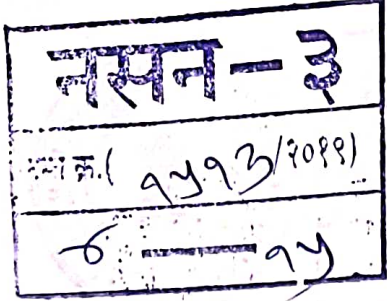 नसन - ३
क्र.( १५१३/२०११)
— १५